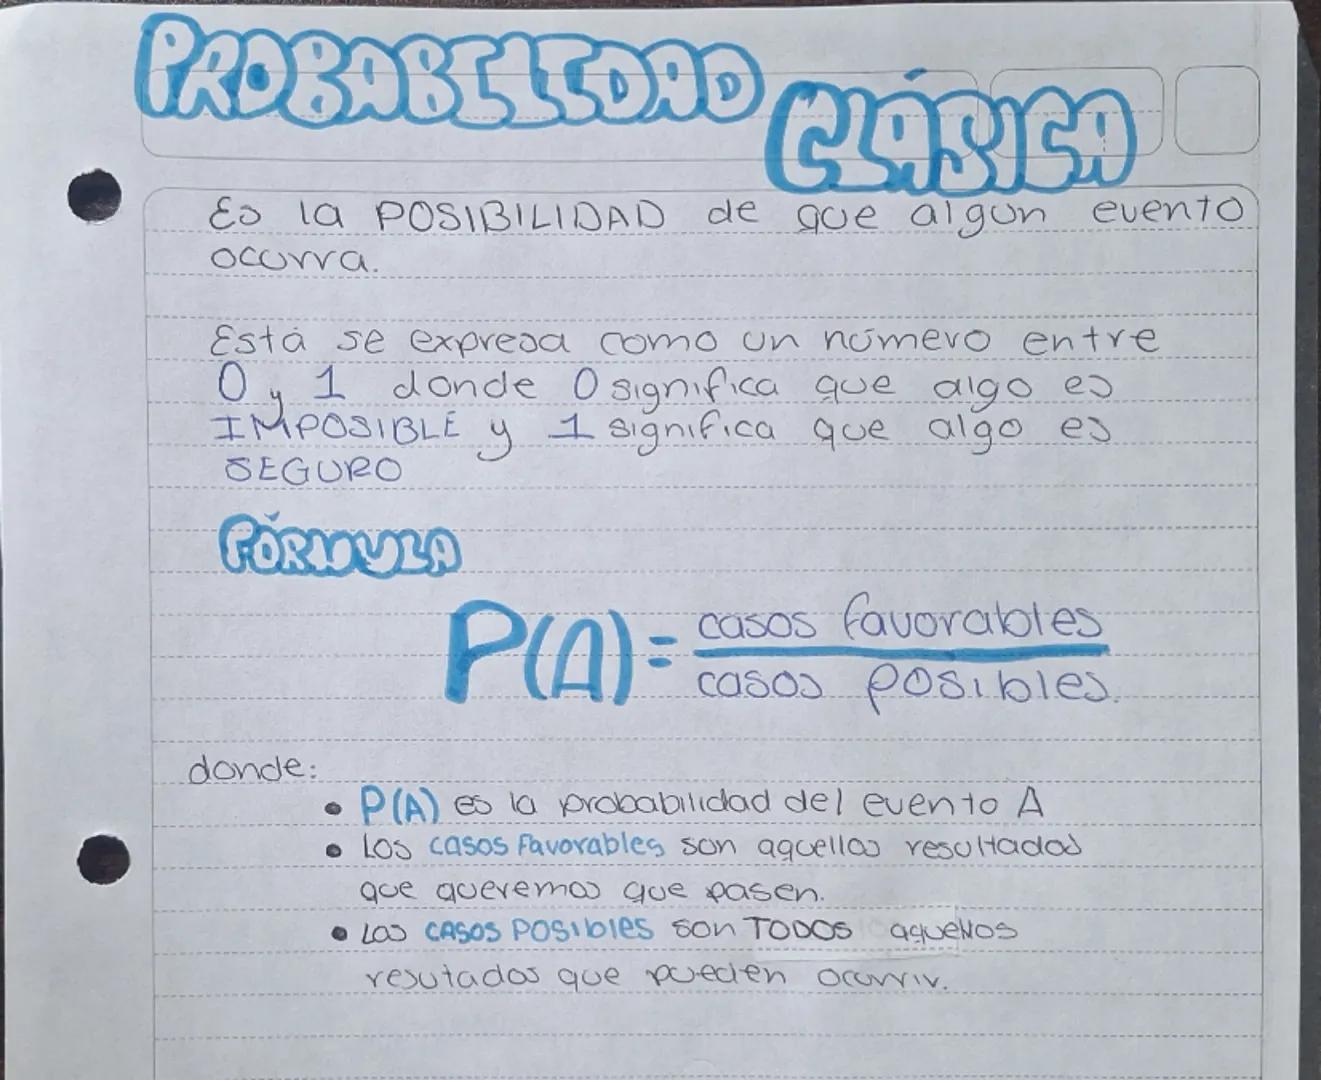 PROBABILIDAD CLÁSICA
Es la POSIBILIDAD de que algún evento
ocurra.
Está se expresa como un número entre
0 y 1 donde 0 significa que algo es
IMPOSIBLE y 1 significa que algo es
SEGURO
FÓRMULA
P(A) = casos favorables
casos posibles.
donde:
• P(A) es la probabilidad del evento A
• Los casos Favorables son aquellos resultados
que queremos que pasen.
• Los CASOS POSIBLES son TODOS aquellos
resutados que pueden ocurrir.